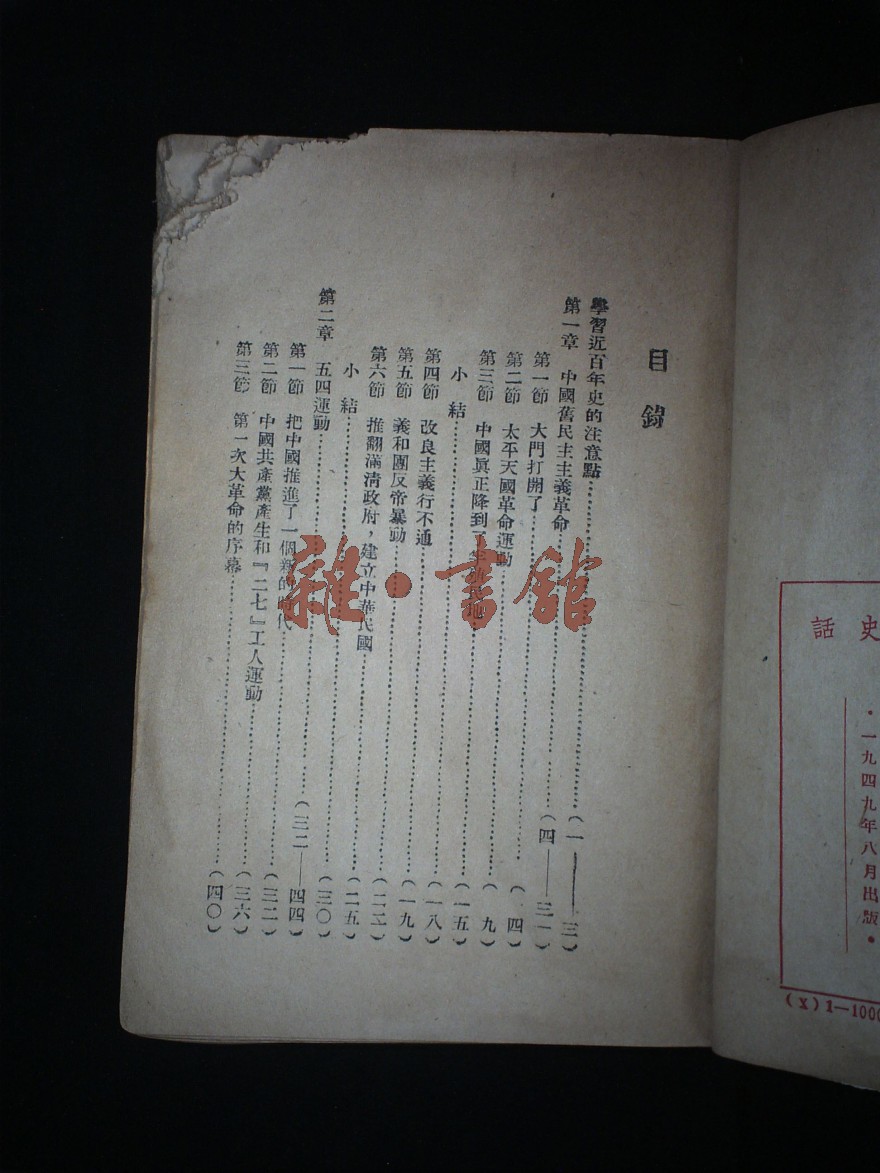 史話
・一九四九年八月出版・
(X)1—1000
目錄
學習近百年史的注意點……（一——三）
第一章 中國舊民主主義革命……（四——三一）
第一節 大門打開了……（四）
第二節 太平天國革命運動……（九）
第三節 中國眞正降到了半殖民地……（一五）
小結……（一八）
第四節 改良主義行不通……（一九）
第五節 義和團反帝暴動……（二二）
第六節 推翻滿清政府，建立中華民國……（二五）
小結……（三〇）
第二章 五四運動……（三二——四四）
第一節 把中國推進了一個新的時代……（三二）
第二節 中國共產黨產生和『二七』工人運動……（三六）
第三節 第一次大革命的序幕……（四〇）
雜・書館